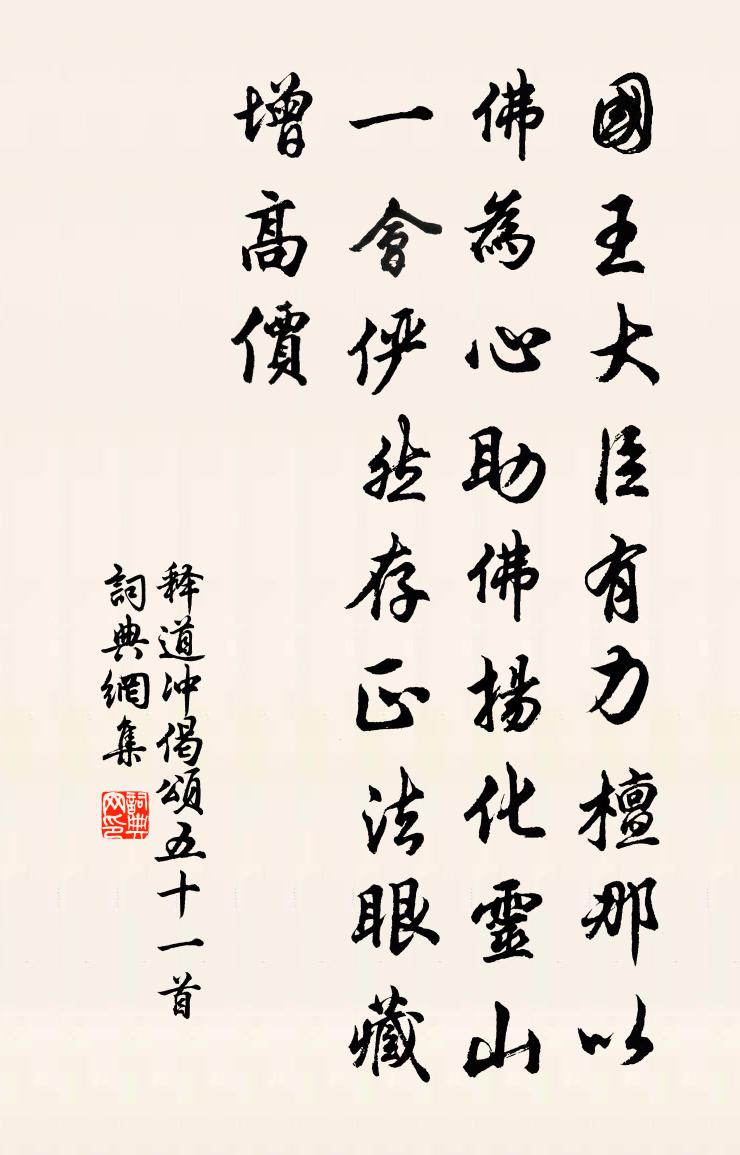 國王大臣有力檀那以
佛為心助佛揚化靈山
一會俨然存正法眼藏
增高價
释道冲偈頌五十一首
詞典網集
詞典网印